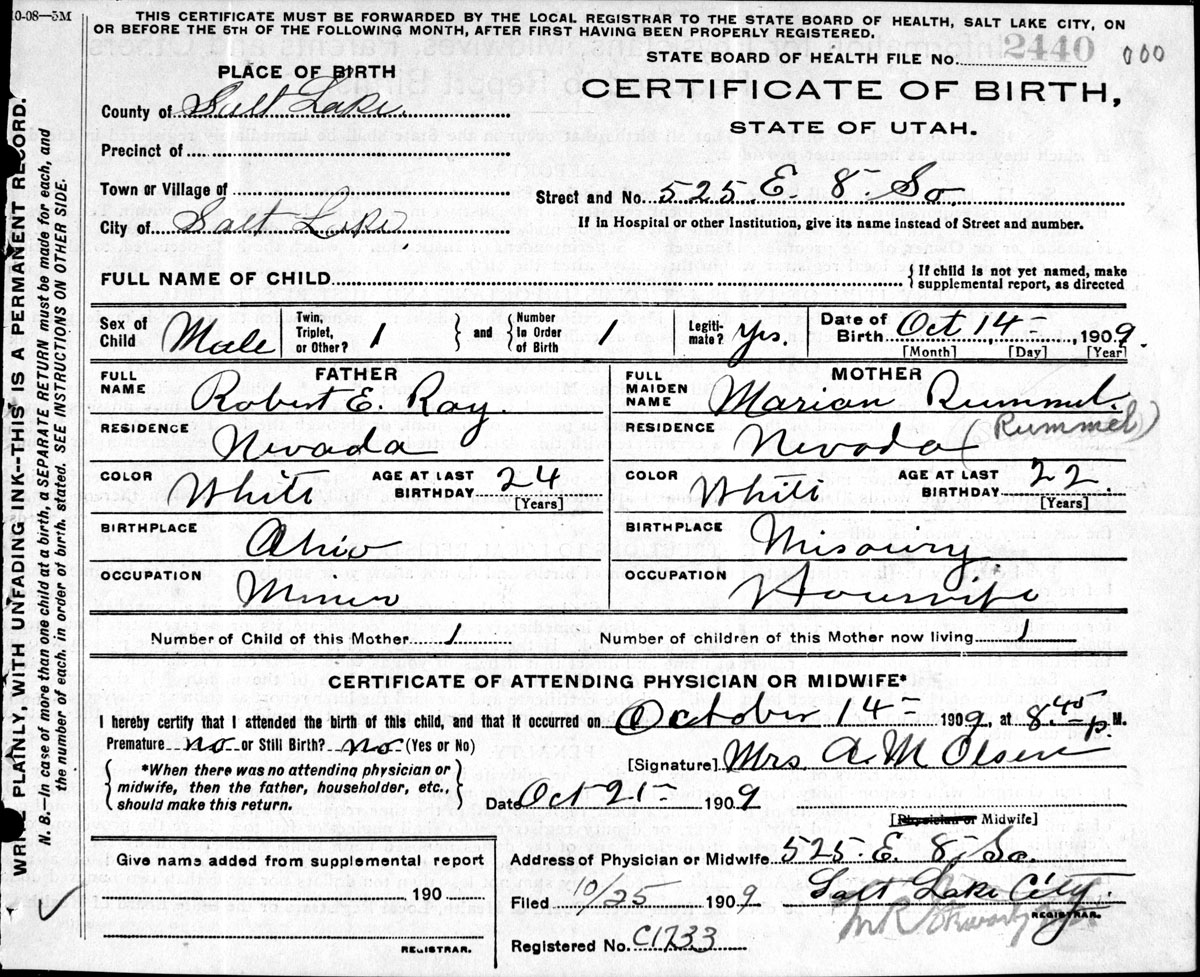 10-08—5M
THIS CERTIFICATE MUST BE FORWARDED BY THE LOCAL REGISTRAR TO THE STATE BOARD OF HEALTH, SALT LAKE CITY, ON
OR BEFORE THE 5TH OF THE FOLLOWING MONTH, AFTER FIRST HAVING BEEN PROPERLY REGISTERED.
STATE BOARD OF HEALTH FILE NO. 2440 000
PLACE OF BIRTH
CERTIFICATE OF BIRTH,
STATE OF UTAH.
County of Salt Lake.
Precinct of
Town or Village of
Street and No. 525 E 8 So.
City of Salt Lake
If in Hospital or other Institution, give its name instead of Street and number.
FULL NAME OF CHILD
{ If child is not yet named, make
supplemental report, as directed
Sex of Child Male
Twin, Triplet, or Other? 1 } and { Number in Order of Birth 1
Legitimate? Yes.
Date of Birth Oct 14, 1909.
[Month] [Day] [Year]
FATHER
FULL NAME Robert E. Ray.
RESIDENCE Nevada
COLOR White
AGE AT LAST BIRTHDAY 24
[Years]
BIRTHPLACE Ohio
OCCUPATION Miner
MOTHER
FULL MAIDEN NAME Marian Rummel.
(Rummel)
RESIDENCE Nevada
COLOR White
AGE AT LAST BIRTHDAY 22
[Years]
BIRTHPLACE Misoury
OCCUPATION Housewife
Number of Child of this Mother 1
Number of children of this Mother now living 1
CERTIFICATE OF ATTENDING PHYSICIAN OR MIDWIFE*
I hereby certify that I attended the birth of this child, and that it occurred on October 14 1909, at 8.45 p M.
Premature no or Still Birth? no (Yes or No)
[Signature] Mrs A M Olsen
{ *When there was no attending physician or
midwife, then the father, householder, etc.,
should make this return. }
Date Oct 21 1909
[Physician or Midwife]
Give name added from supplemental report
190
REGISTRAR.
Address of Physician or Midwife 525 E. 8, So.
Salt Lake City.
Filed 10/25 1909
REGISTRAR.
Registered No. C1733
WRITE PLAINLY, WITH UNFADING INK--THIS IS A PERMANENT RECORD.
N. B. In case of more than one child at a birth, a SEPARATE RETURN must be made for each, and
the number of each, in order of birth, stated. SEE INSTRUCTIONS ON OTHER SIDE.